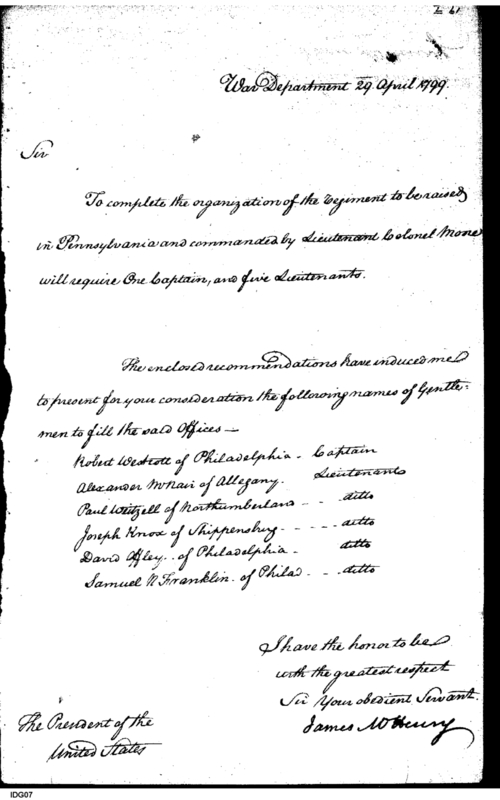 War Department 29 April 1799.
Sir
To complete the organization of the Regiment to be raised
in Pennsylvania and commanded by Lieutenant Colonel Moore
will require One Captain, and five Lieutenants.
The enclosed recommendations have induced me
to present for your consideration the following names of Gentle=
men to fill the said Offices—
Robert Westcott of Philadelphia - Captain
Alexander McNair of Allegany. Lieutenant
Paul Weitzell of Northumberland - - ditto
Joseph Knox of Shippensburg - - - - ditto
David Offley . of Philadelphia - ditto
Samuel N Franklin . of Philad - - - ditto
I have the honor to be
with the greatest respect
Sir Your obedient Servant.
James McHenry
The President of the
United States
IDG07